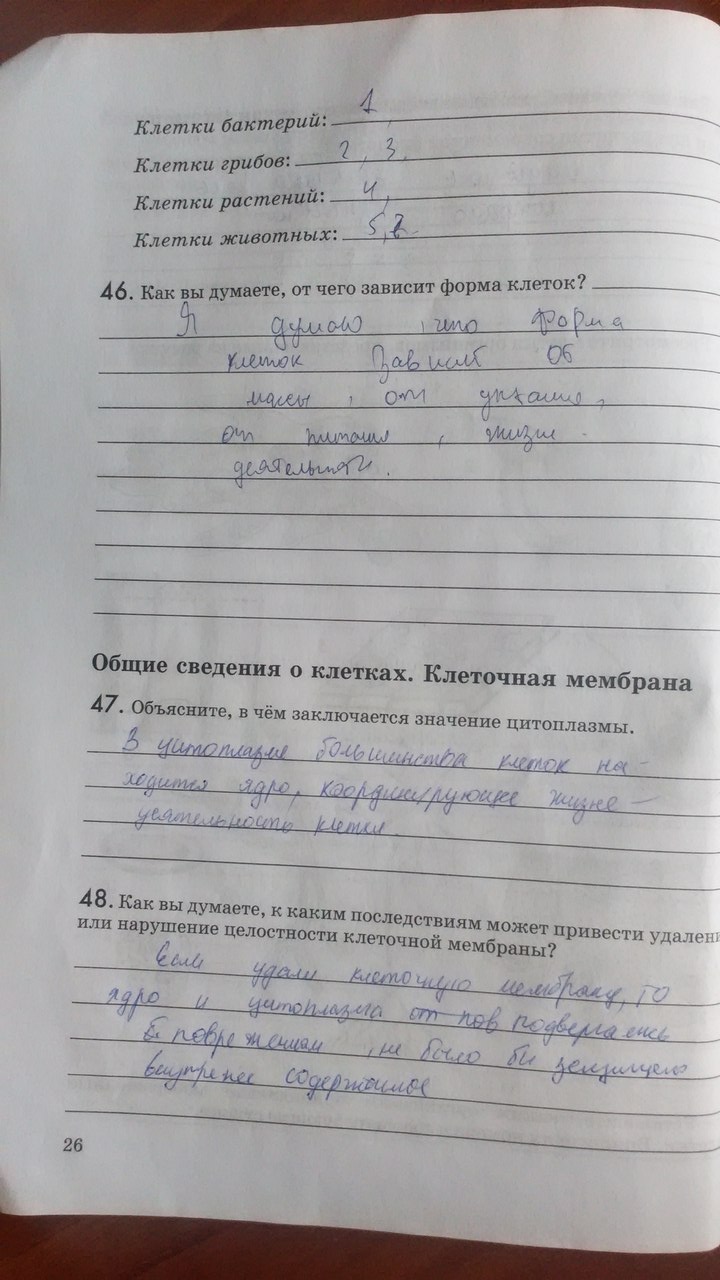 Клетки бактерий: 1,
Клетки грибов: 2, 3.
Клетки растений: 4,
Клетки животных: 5,
46. Как вы думаете, от чего зависит форма клеток?
Я думаю, что форма
клеток Зависит об
массы, от
от питания, жизне
деятельности.
Общие сведения о клетках. Клеточная мембрана
47. Объясните, в чём заключается значение цитоплазмы.
В цитоплазме большинства клеток на-
ходится ядро, координирующее жизне-
деятельность клетки.
48. Как вы думаете, к каким последствиям может привести удалени
или нарушение целостности клеточной мембраны?
Если удали клеточную мембрану, то
ядро и цитоплазма подвергались
повреждениям, не было бы
внутренее содержимое
26